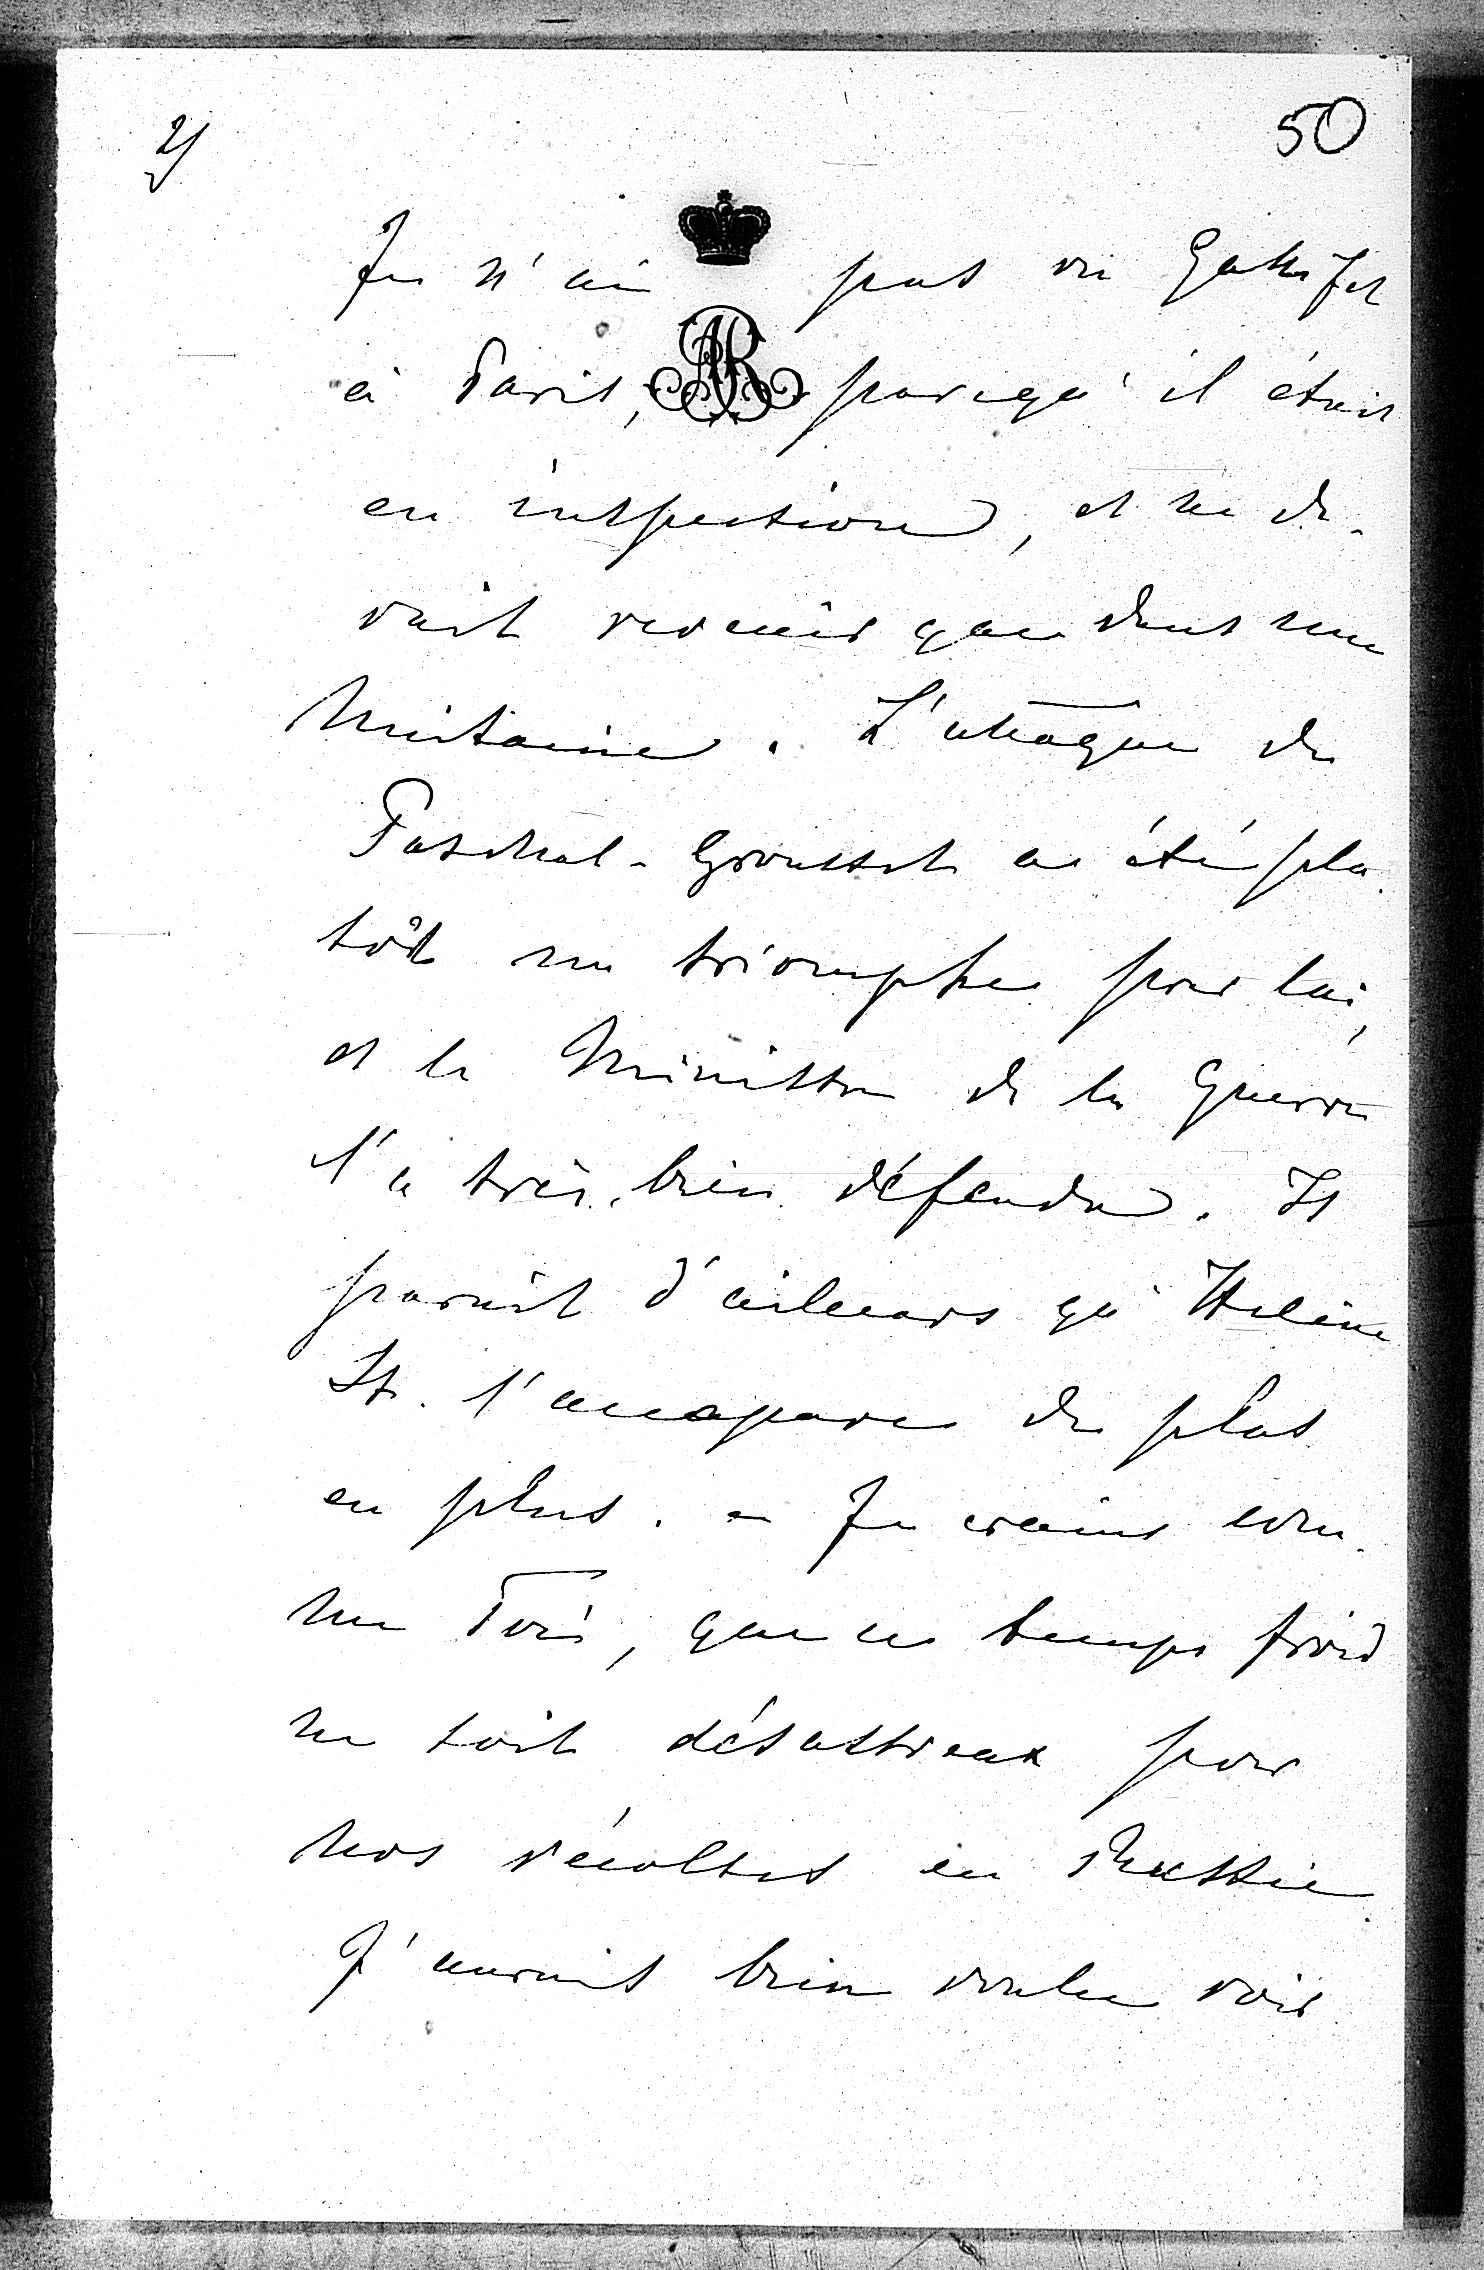 2/
50
Je n'ai pas vu Gallifet
à Paris, parcequ'il était
en inspection, et ne de-
vait revenir que dans une
huitaine. L'attaque de
Paschal-Grousset a été plu-
tôt un triomphe pour lui,
et le Ministre de la Guerre
l'a très bien défendu. Il
parait d'ailleurs qu'Hélène
St. l'accapare de plus
en plus. – Je crains com-
me Toi, que ce temps froid
ne soit désastreux pour
nos récoltes en Russie.
J'aurais bien voulu voir